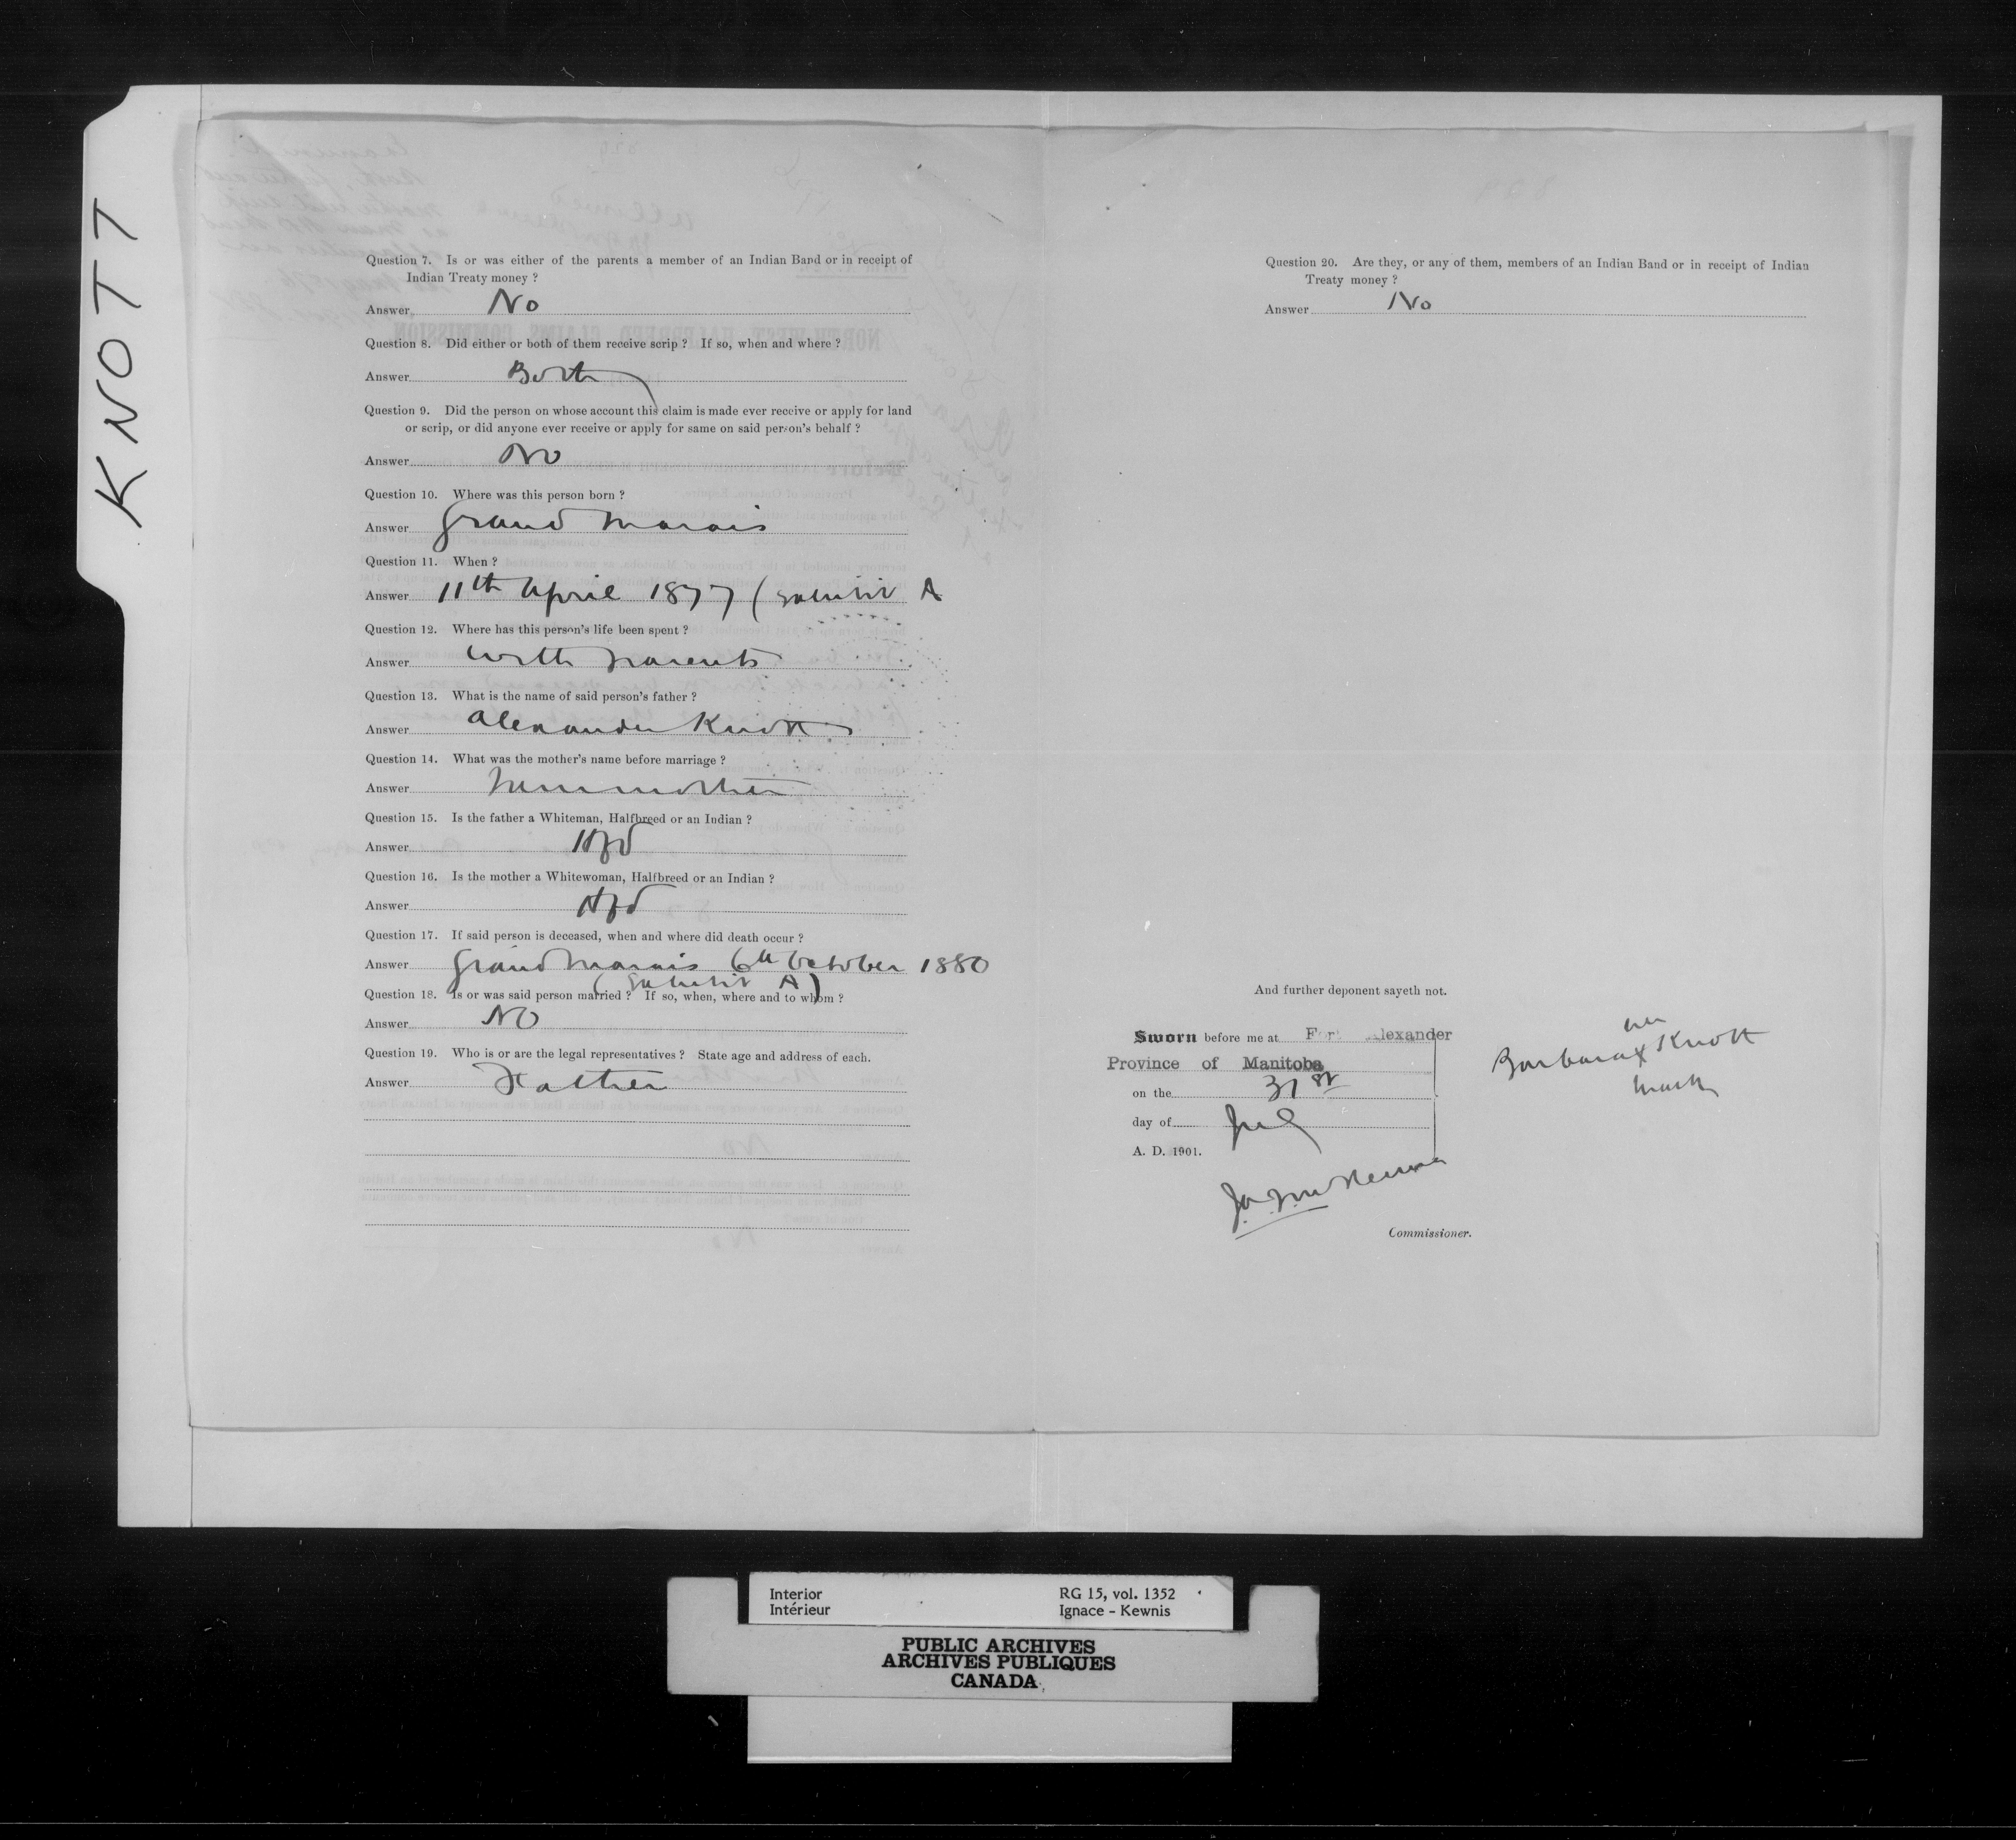 KNOTT
Question 7. Is or was either of the parents a member of an Indian Band or in receipt of
Indian Treaty money ?
Answer No
Question 8. Did either or both of them receive scrip ? If so, when and where ?
Answer Both
Question 9. Did the person on whose account this claim is made ever receive or apply for land
or scrip, or did anyone ever receive or apply for same on said person's behalf ?
Answer No
Question 10. Where was this person born ?
Answer Grand Marais
Question 11. When ?
Answer 11th April 1877 (Exhibit A
Question 12. Where has this person's life been spent ?
Answer With parents
Question 13. What is the name of said person's father ?
Answer Alexander Knott
Question 14. What was the mother's name before marriage ?
Answer
Question 15. Is the father a Whiteman, Halfbreed or an Indian ?
Answer Hfd
Question 16. Is the mother a Whitewoman, Halfbreed or an Indian ?
Answer Hfd
Question 17. If said person is deceased, when and where did death occur ?
Answer Grand Marais 6th October 1880
(Exhibit A)
Question 18. Is or was said person married ? If so, when, where and to whom ?
Answer NO
Question 19. Who is or are the legal representatives ? State age and address of each.
Answer Father
Question 20. Are they, or any of them, members of an Indian Band or in receipt of Indian
Treaty money ?
Answer No
And further deponent sayeth not.
Sworn before me at Fort Alexander
Province of Manitoba
on the 31st
day of July
A. D. 1901.
her
Barbara X Knott
mark
Commissioner.
Interior
Intérieur
RG 15, vol. 1352
Ignace - Kewnis
PUBLIC ARCHIVES
ARCHIVES PUBLIQUES
CANADA